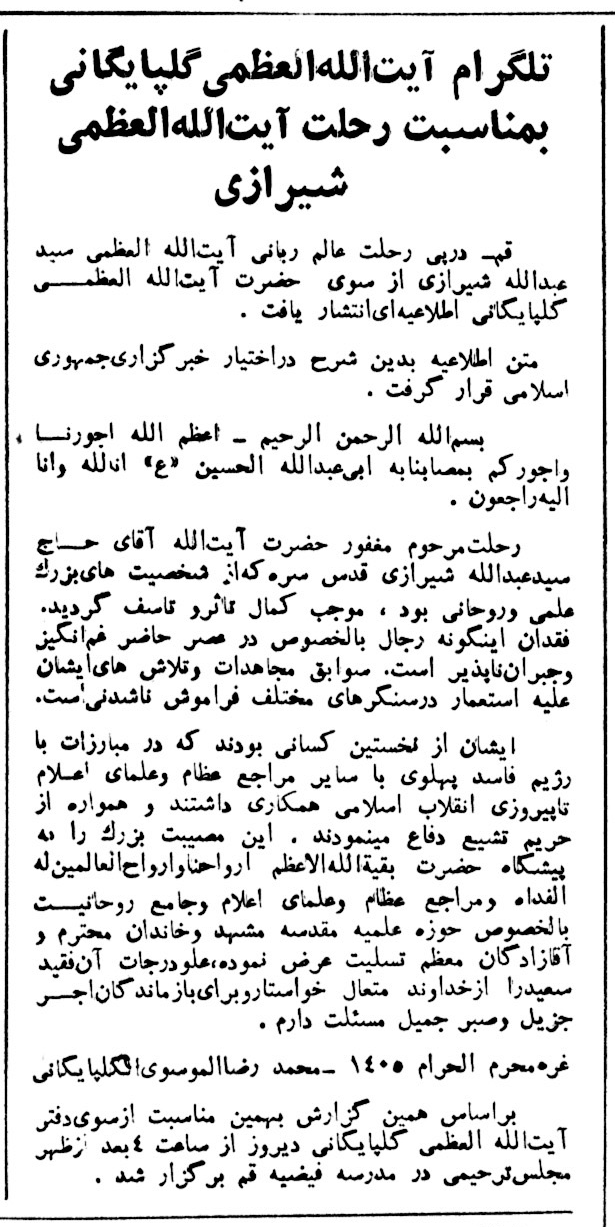 تلگرام آیت‌الله‌العظمی گلپایگانی
بمناسبت رحلت آیت‌الله‌العظمی
شیرازی
قم‌ـ درپی رحلت عالم ربانی آیت‌الله العظمی سید
عبدالله شیرازی از سوی حضرت آیت‌الله العظمــــی
گلپایگانی اطلاعیه‌ای‌انتشار یافت .
متن اطلاعیه بدین شرح دراختیار خبرگزاری‌جمهوری
اسلامی قرار گرفت .
بسم‌الله الرحمن الرحیم ـ اعظم الله اجورنــا
واجورکم بمصابنابه ابی‌عبدالله الحسین «ع» انالله وانا
الیه‌راجعون .
رحلت‌مرحوم مغفور حضرت آیت‌الله آقای حــاج
سیدعبدالله شیرازی قدس سره که‌از شخصیت های‌بزرگ
علمی وروحانی بود ، موجب کمال تاثرو تاسف گردید.
فقدان اینگونه رجال بالخصوص در عصر حاضر غم‌انگیز
وجبران‌ناپذیر است. سوابق مجاهدات وتلاش های‌ایشان
علیه استعمار درسنگرهای مختلف فراموش ناشدنی‌است.
ایشان از نخستین کسانی بودند که در مبارزات با
رژیم فاسد پهلوی با سایر مراجع عظام وعلمای اعـلام
تاپیروزی انقلاب اسلامی همکاری داشتند و همواره از
حریم تشیع دفاع مینمودند . این مصیبت بزرگ را به
پیشگاه حضرت بقیةالله‌الاعظم ارواحناوارواح‌العالمین‌له
الفداه ومراجع عظام وعلمای اعلام وجامع روحانیــت
بالخصوص حوزه علمیه مقدسه مشهد وخاندان محترم و
آقازادگان معظم تسلیت عرض نموده،علودرجات آن‌فقید
سعیدرا ازخداوند متعال خواستاروبرای‌بازماندگان‌اجــر
جزیل وصبر جمیل مسئلت دارم .
غره‌محرم الحرام ۱۴۰۵ ـمحمد رضاالموسوی‌الگلپایگانی
براساس همین گزارش بهمین مناسبت ازسوی‌دفتر
آیت‌الله العظمی گلپایگانی دیروز از ساعت ۴بعد ازظهر
مجلس‌ترحیمی در مدرسه فیضیه قم برگزار شد .